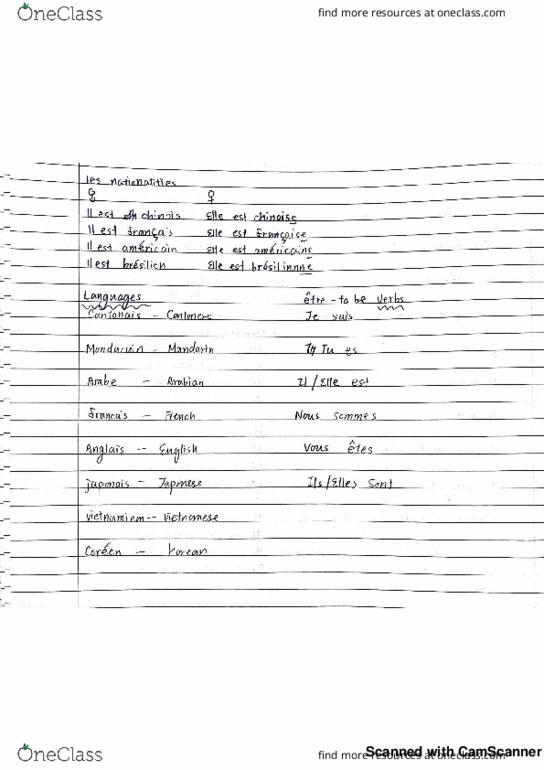 OneClass
find more resources at oneclass.com
les nationalities
♂ ♀
Il est chinois Elle est chinoise
Il est français Elle est française
Il est américain Elle est américaine
Il est brésilien Elle est brésilinnne
Languages être - to be verbs
Cantonais - Cantonese Je suis
Mandarin - Mandarin Tu es
Arabe - Arabian Il/Elle est
francais - French Nous sommes
Anglais -- English Vous êtes
japonais - Japanese Ils/Elles sont
vietnamien -- Vietnamese
Coréen - Korean
OneClass
find more resources at oneclass.com
Scanned with CamScanner